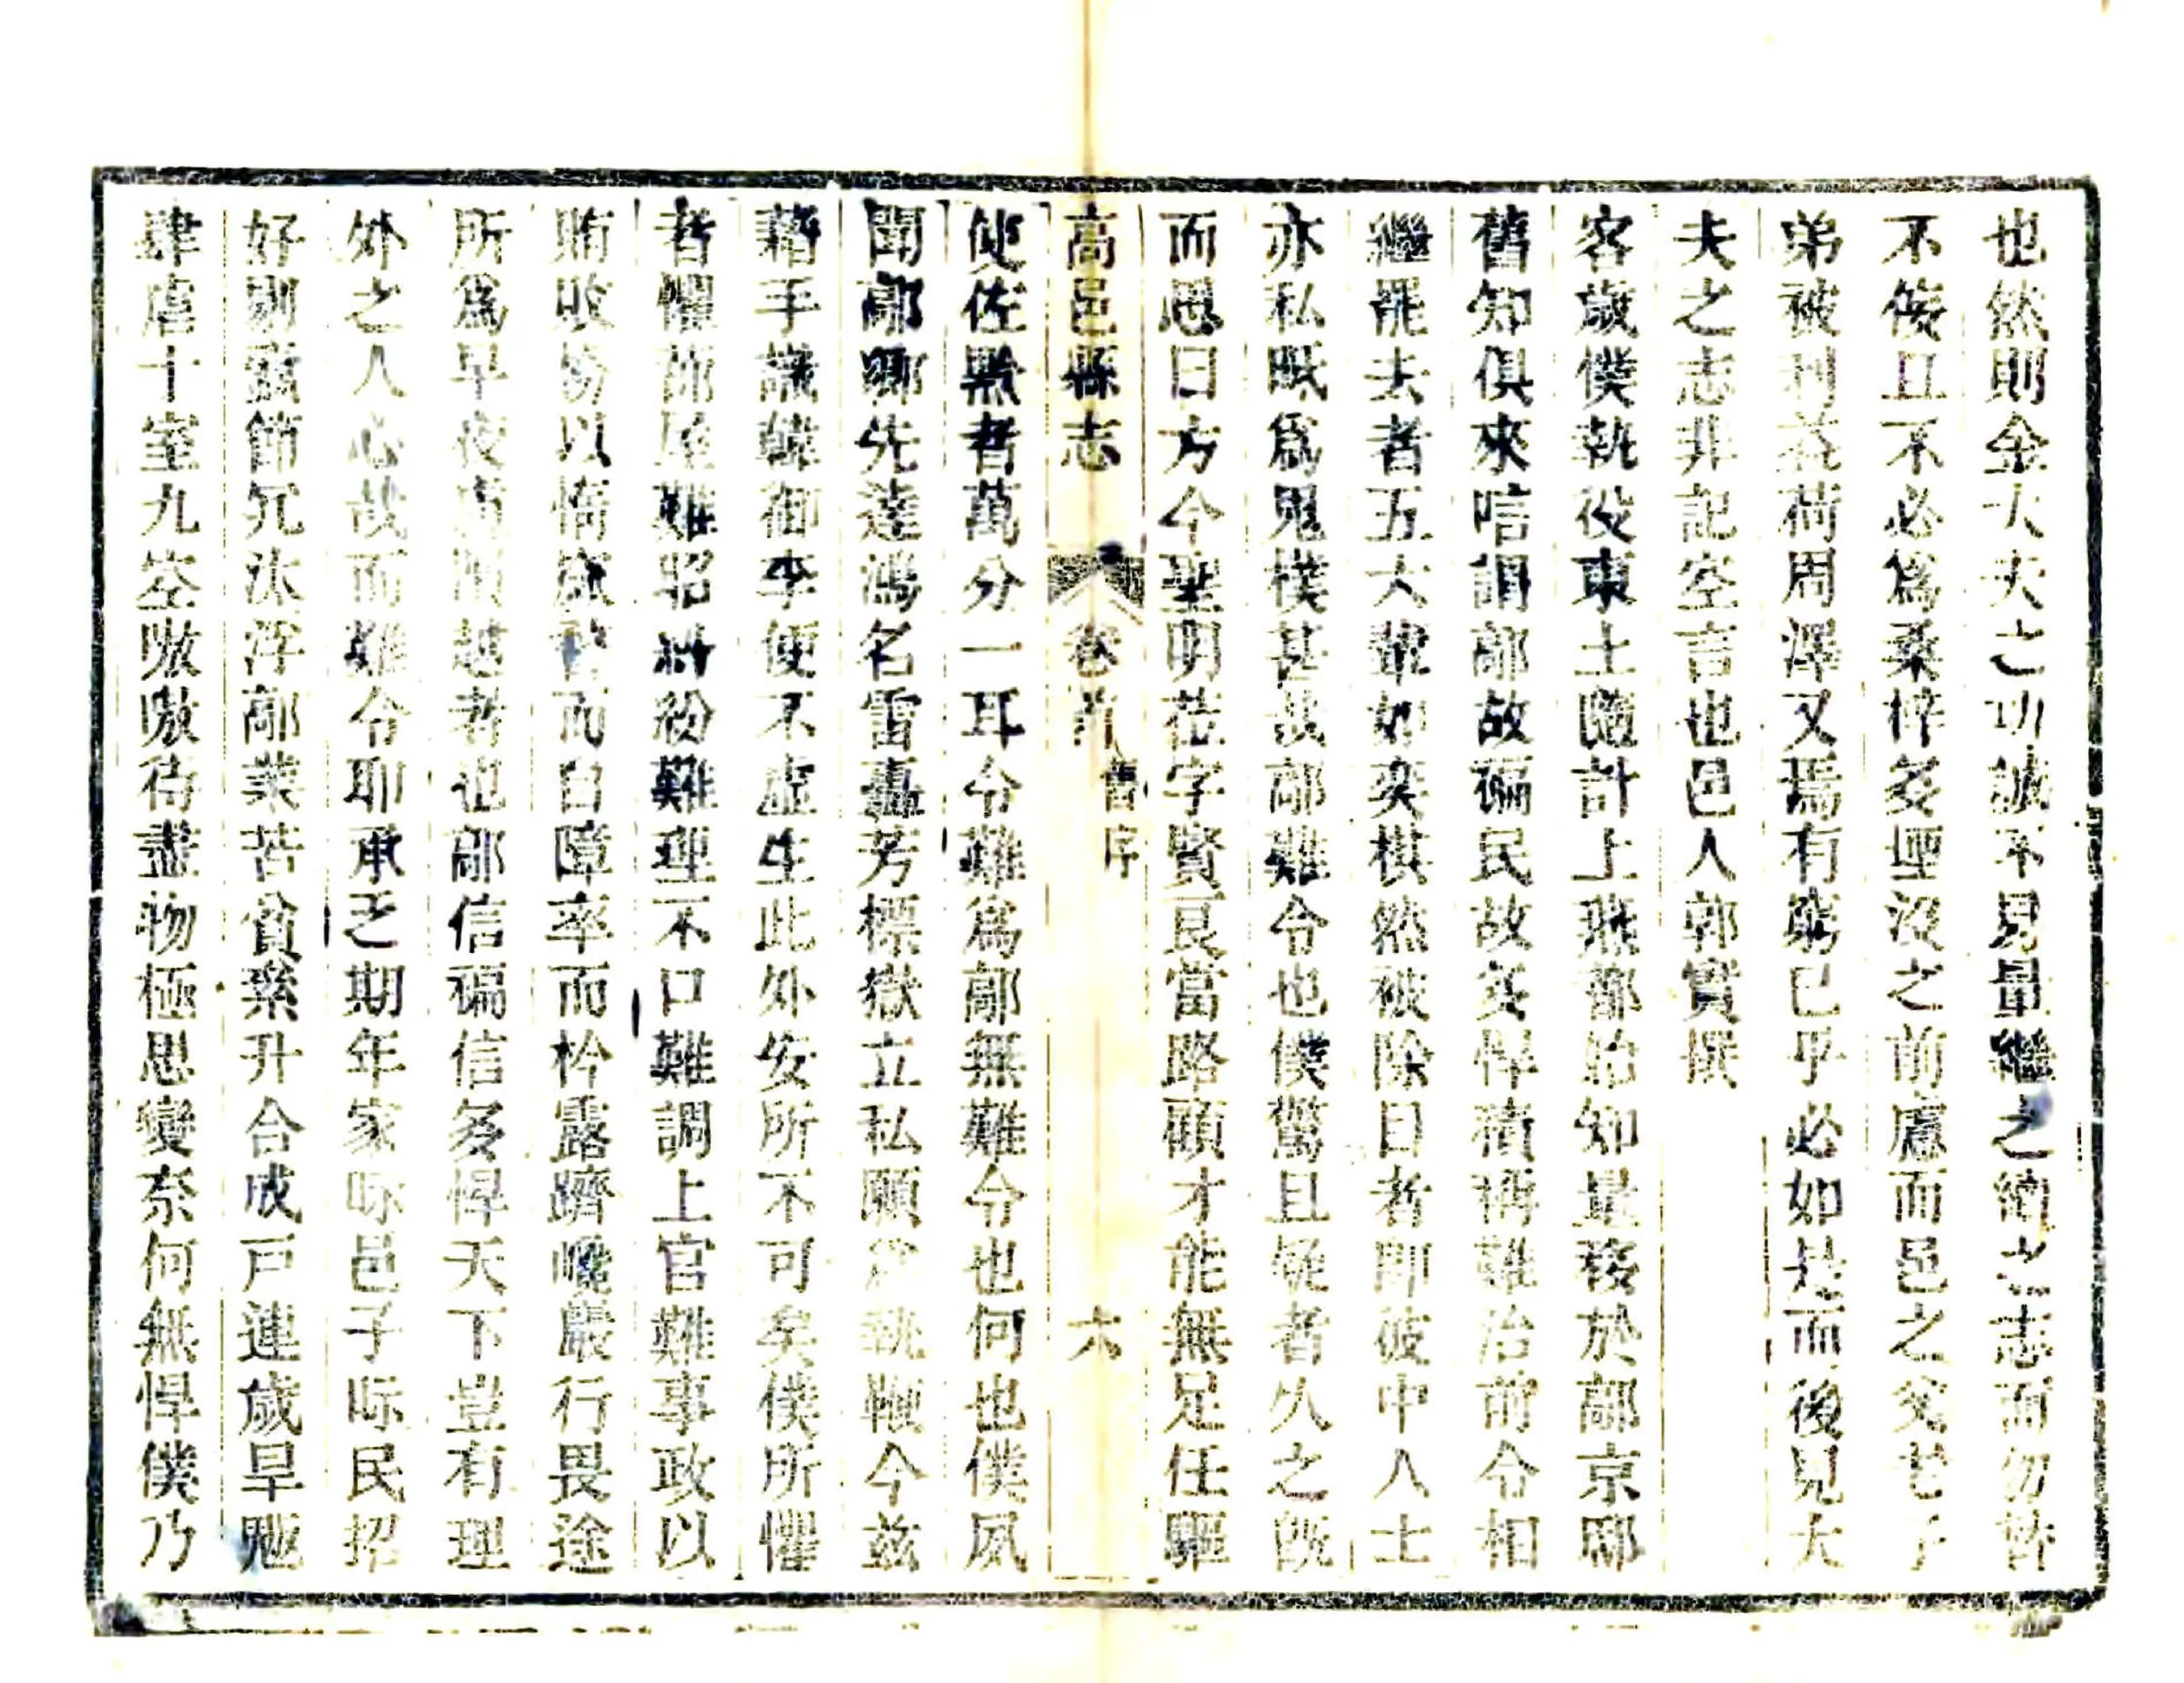 也然則金大夫之功誠不易量繼之者之志而勿替
不俟且不必爲桑梓多堙沒之前慮而邑之父老子
弟被利益荷周澤又焉有窮已乎必如是而後見大
夫之志非記空言也邑人郭實撰
客歲僕執役東土隨計上燕都始知量移於鄗京邸
舊知俱來唁謂鄗故褊民故亥悍積稱難治前令相
繼罷去者五大輩如奕棋然被除目者即彼中人士
亦私眂爲鬼樸甚哉鄗難令也僕驚且疑者久之旣
而思曰方今聖明莅宇賢良當路顧才能無足任驅
高邑縣志 卷首 舊序 六
使佐點者萬分一耳令難爲鄗無難令也何也僕夙
聞鄗鄉先達鴻名雷轟芳標嶽立私願爲執鞭今茲
藉手識韓御李便不虛生此外安所不可矣僕所懼
者懼蔀屋難昭糾紛難理不口難調上官難事政以
賄敗務以惰窳智而自障率而矜露躋巉巖行畏途
所爲早夜虞隕越者也鄗信褊信多悍天下豈有理
外之人心哉而難令耶承乏期年家眎邑子眎民招
好剔蠹節冗汰浮鄗業苦貧絫升合成戸連歲旱魃
肆虐十室九空嗷嗷待盡物極思變柰何無悍僕乃